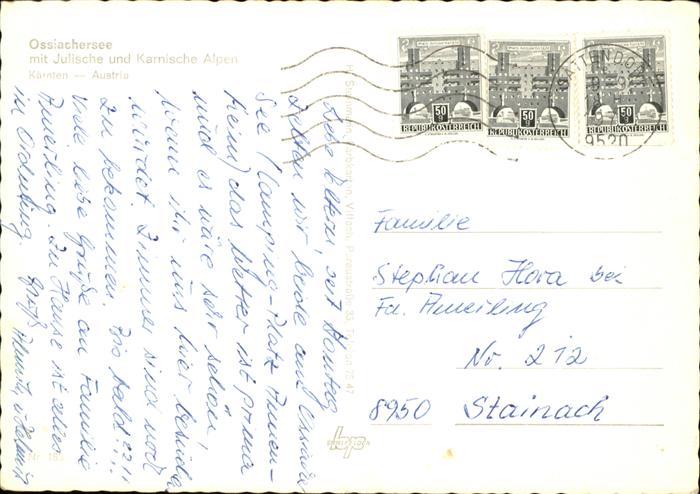 Ossiachersee
mit Julische und Karnische Alpen
Kärnten — Austria
Liebe Eltern, seit Montag
zelten wir beide am Ossiacher
See (Camping-Platz
heim) das Wetter ist prima
und es wäre sehr schön,
wenn ihr uns hier besuchen
würdet. Zimmer sind noch
zu bekommen. Bis bald?
Viele liebe Grüße an Familie
Ameiling. Zu Hause ist alles
in Ordnung.
Nr. 183
REPUBLIK ÖSTERREICH
50 g
REPUBLIK ÖSTERREICH
50 g
REPUBLIK ÖSTERREICH
50 g
9520
Familie
Stephan Hora bei
Fa. Ameiling
Nr. 212
8950 Stainach